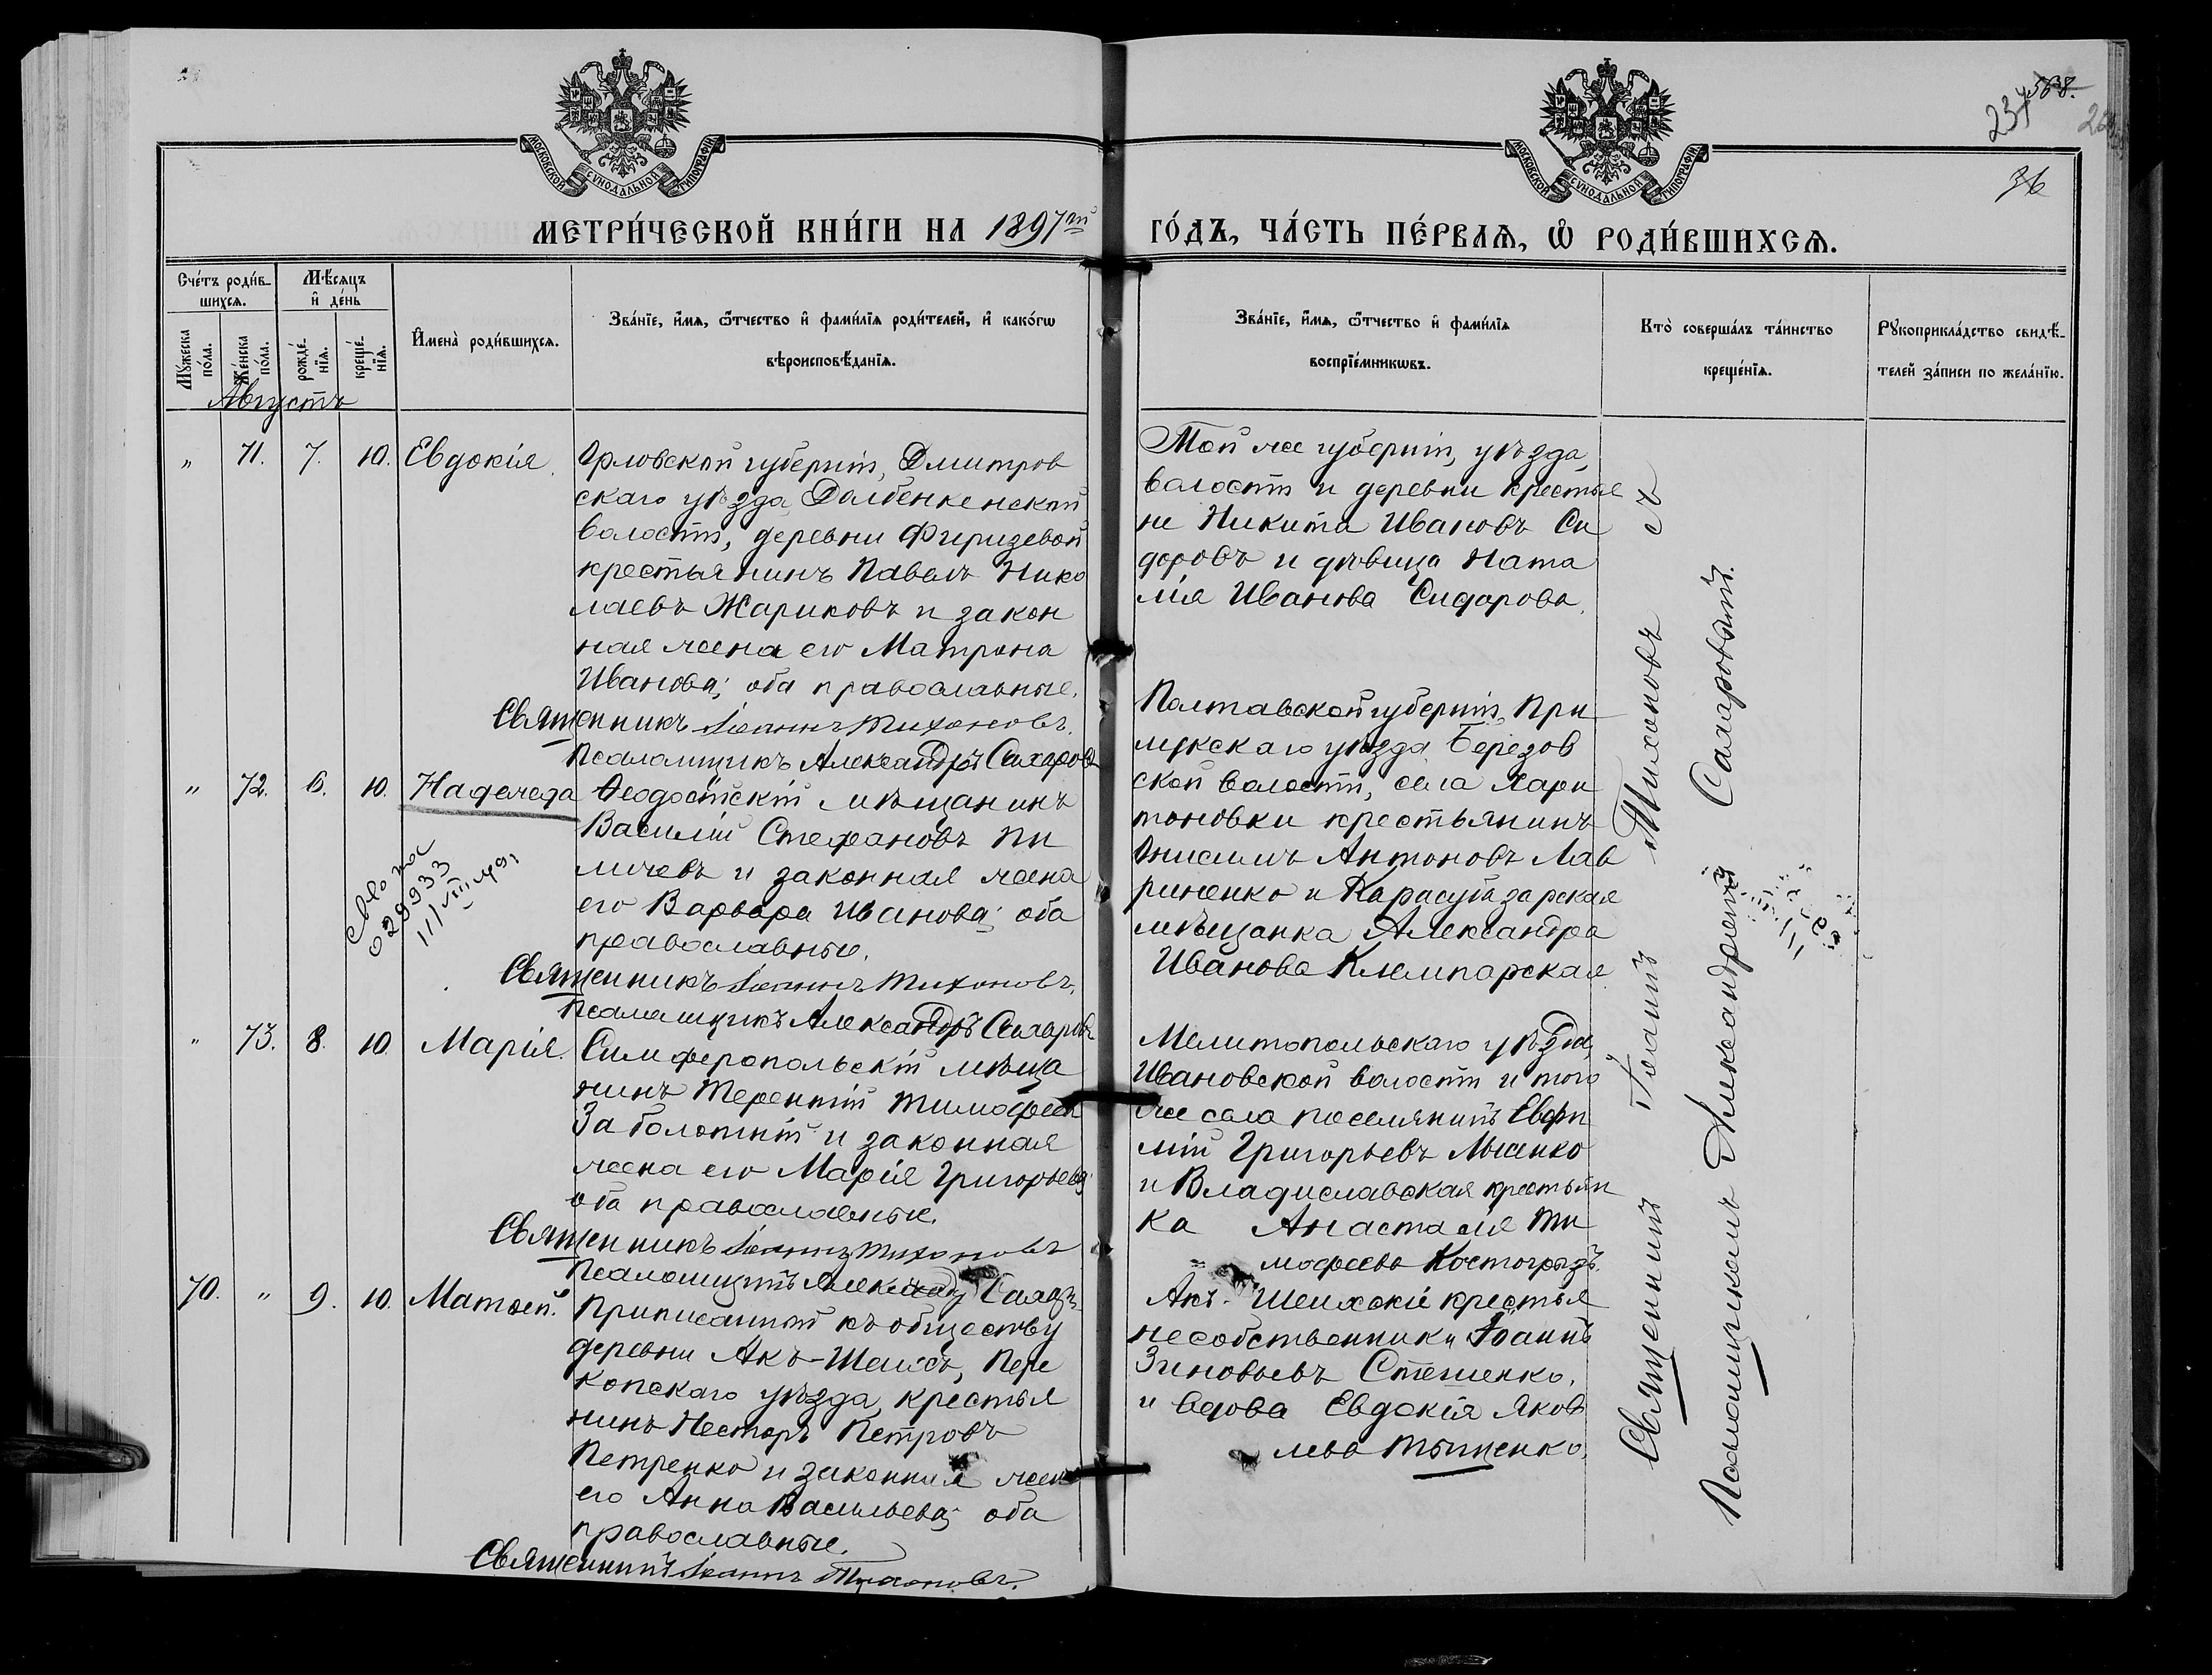 МОСКОВСКОЙ СѴНОДАЛЬНОЙ ТИПОГРАФІИ
МОСКОВСКОЙ СѴНОДАЛЬНОЙ ТИПОГРАФІИ
568.
237
36
МЕТРИ́ЧЕСКОЙ КНИ́ГИ НА 1897й ГО́ДЪ, ЧА́СТЬ ПЕ́РВАѦ, Ѡ҆ РОДИ́ВШИХСѦ.
Сче́тъ роди́в-
шихсѧ.
Мꙋ́жеска по́ла.
Же́нска по́ла.
Мѣ́сѧцъ
и҆ де́нь
рожде́-нїѧ.
креще́-нїѧ.
И҆мена̀ роди́вшихсѧ.
Зва́нїе, и҆́мѧ, ѻ҆́тчество и҆ фами́лїѧ роди́телей, и҆ како́гѡ
вѣроисповѣ́данїѧ.
Зва́нїе, и҆́мѧ, ѻ҆́тчество и҆ фами́лїѧ
воспрїе́мникѡвъ.
Кто̀ соверша́лъ та́инство
креще́нїѧ.
Рꙋкоприкла́дство свидѣ́-
телей за́писи по жела́нїю.
Августъ
" 71. 7. 10. Евдокія.
Орловской губерніи, Дмитров
скаго уѣзда, Долбенкенской
волости, деревни Фиризевой
крестьянинъ Павелъ Нико
лаевъ Жариковъ и закон
ная жена его Матрона
Иванова; оба православные.
Священникъ Іоаннъ Тихоновъ.
Псаломщикъ Александръ Сахаровъ
Той же губерніи, уѣзда,
волости и деревни крестья
не Никита Ивановъ Си
доровъ и дѣвица Ната
лія Иванова Сидорова.
" 72. 6. 10. Надежда
Ѳеодосійскій мѣщанинъ
Василій Стефановъ Пи
личевъ и законная жена
его Варвара Иванова; оба
православные.
Священникъ Іоаннъ Тихоновъ.
Псаломщикъ Александръ Сахаровъ
029933
Полтавской губерніи, При
лукскаго уѣзда Березов
ской волости, села Хари
тоновки крестьянинъ
Онисимъ Антоновъ Лав
риненко и Карасубазарская
мѣщанка Александра
Иванова Клемпарская.
" 73. 8. 10. Марія.
Симферопольскій мѣща
нинъ Терентій Тимофеевъ
Заболотній и законная
жена его Марія Григорьева;
оба православные.
Священникъ Іоаннъ Тихоновъ
Псаломщикъ
Мелитопольскаго уѣзда,
Ивановской волости и того
же села поселянинъ Евфи
мій Григорьевъ Лысенко
и Владиславская крестьян
ка Анастасія Ти
мофеева Костогрызъ.
70. " 9. 10. Матѳей.
Приписанный къ обществу
деревни Акъ-Шеихъ, Пере
копскаго уѣзда, крестья
нинъ Несторъ Петровъ
Петренко и законная жена
его Анна Васильева; оба
православные.
Священникъ Іоаннъ Тихоновъ.
Акъ-Шеихскіе крестья
не собственники Іоаннъ
Зиновьевъ Стешенко,
и вдова Евдокія Яков
лева Тыщенко.
Священникъ Іоаннъ Тихоновъ съ
Псаломщикомъ Александромъ Сахаровымъ.